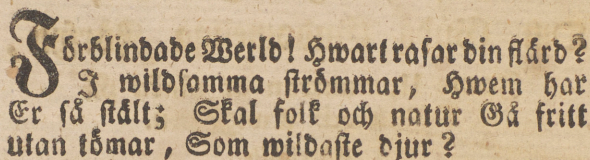 Förblindade Werld! Hwart rasar din flärd?
I wildsamma strömmar, Hwem har
Er så stält; Skal folk och natur Gå fritt
utan tömar, Som wildaste djur?